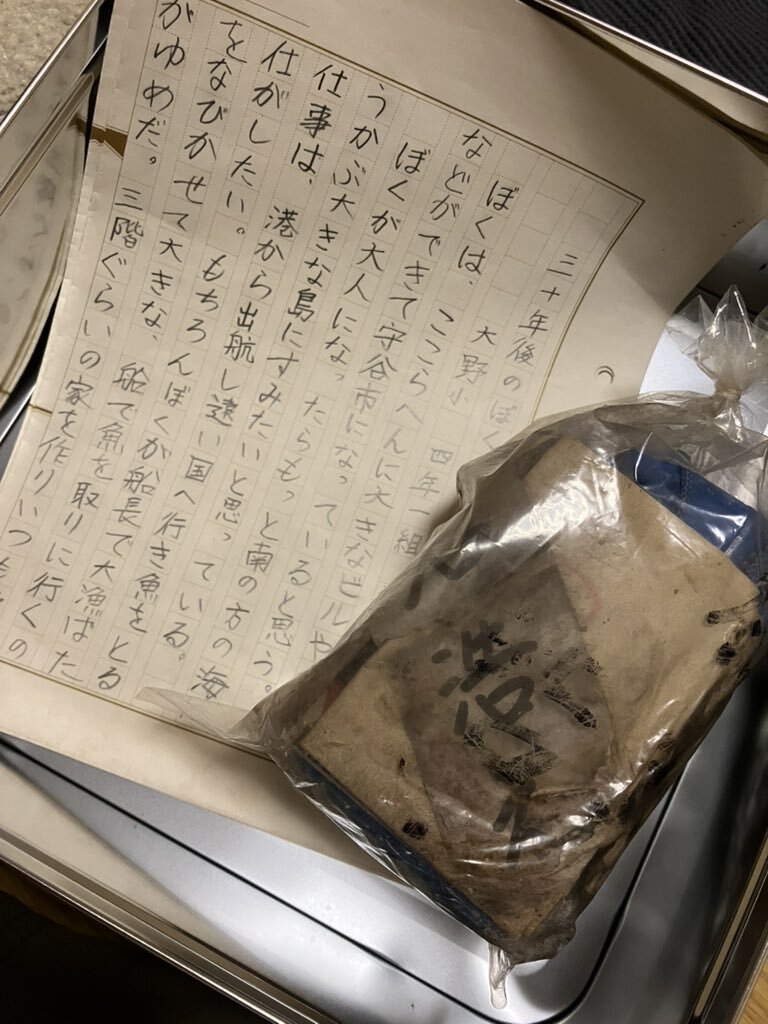 三十年後のぼく
大野小 四年一組
ぼくは、ここらへんに大きなビルや
などができて守谷市になっていると思う。
ぼくが大人になったらもっと南の方の海
うかぶ大きな島にすみたいと思っている。
仕事は、港から出航し遠い国へ行き魚をとる
仕がしたい。もちろんぼくが船長で大漁ばた
をなびかせて大きな、船で魚を取りに行くの
がゆめだ。三階ぐらいの家を作りいつも
浩